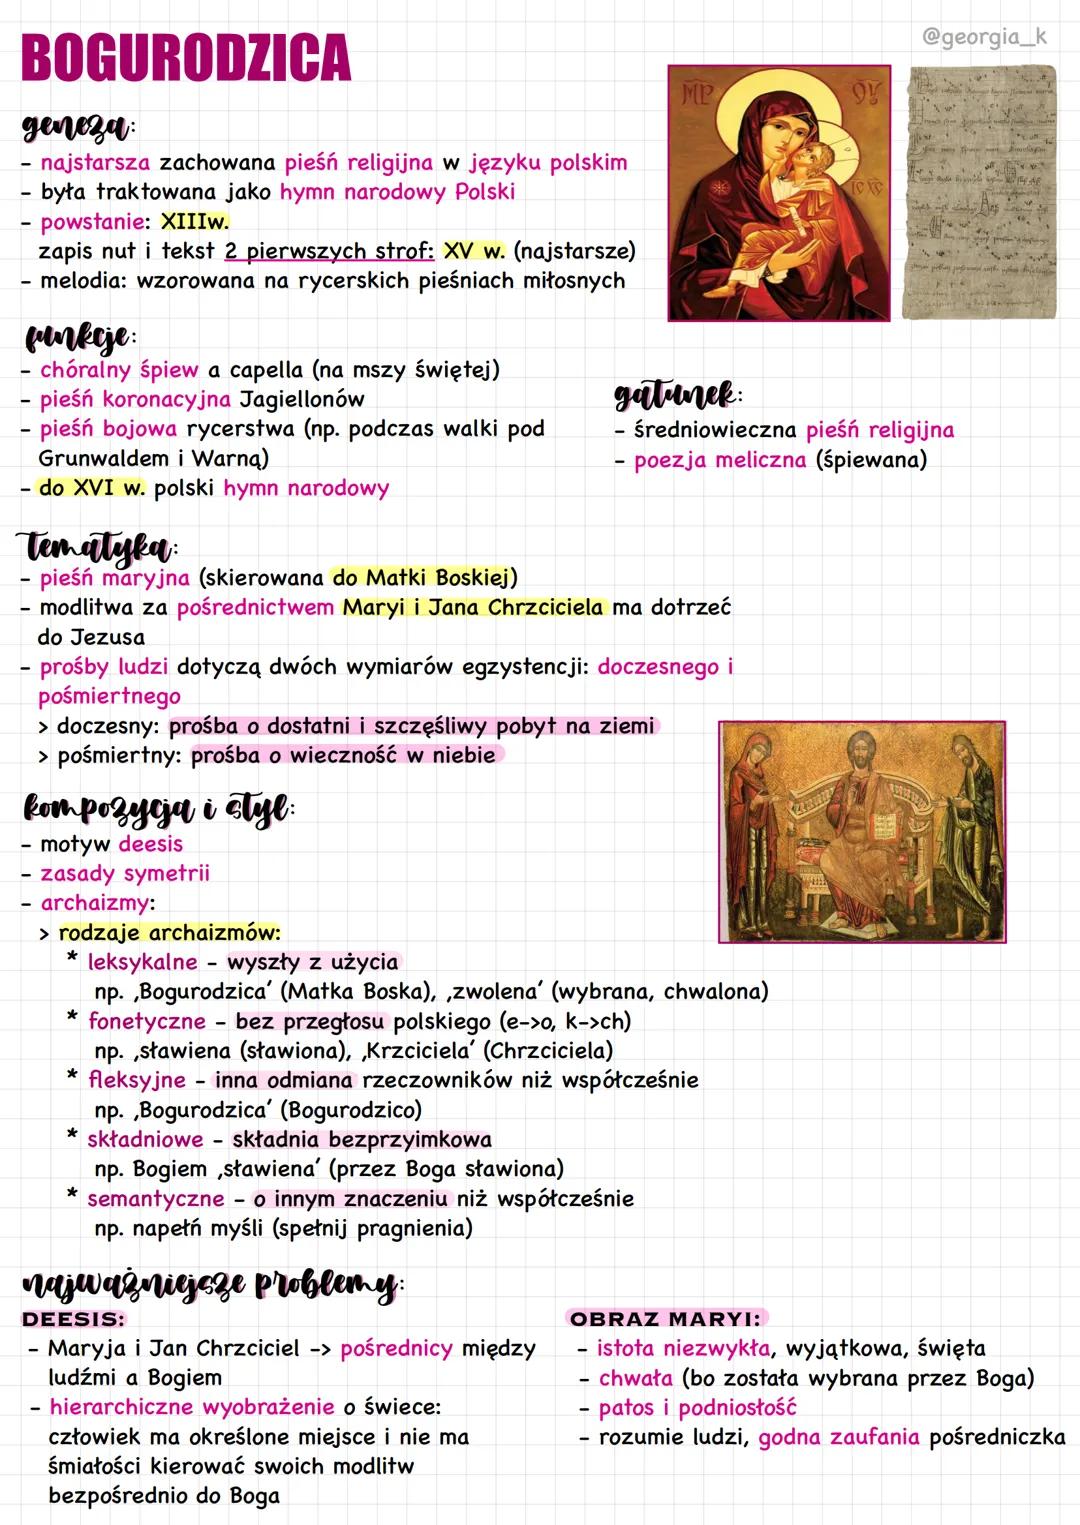 @georgia_k
BOGURODZICA
geneza:
- najstarsza zachowana pieśń religijna w języku polskim
- była traktowana jako hymn narodowy Polski
- powstanie: XIIIw.
zapis nut i tekst 2 pierwszych strof: XV w. (najstarsze)
- melodia: wzorowana na rycerskich pieśniach miłosnych
funkcje:
- chóralny śpiew a capella (na mszy świętej)
- pieśń koronacyjna Jagiellonów
- pieśń bojowa rycerstwa (np. podczas walki pod
Grunwaldem i Warną)
- do XVI w. polski hymn narodowy
gatunek:
- średniowieczna pieśń religijna
- poezja meliczna (śpiewana)
Tematyka:
- pieśń maryjna (skierowana do Matki Boskiej)
- modlitwa za pośrednictwem Maryi i Jana Chrzciciela ma dotrzeć
do Jezusa
- prośby ludzi dotyczą dwóch wymiarów egzystencji: doczesnego i
pośmiertnego
> doczesny: prośba o dostatni i szczęśliwy pobyt na ziemi
> pośmiertny: prośba o wieczność w niebie
kompozycja i styl:
- motyw deesis
- zasady symetrii
- archaizmy:
> rodzaje archaizmów:
* leksykalne - wyszły z użycia
np. ‚Bogurodzica’ (Matka Boska), ‚zwolena’ (wybrana, chwalona)
* fonetyczne - bez przegłosu polskiego (e->o, k->ch)
np. ‚sławiena (sławiona), ‚Krzciciela’ (Chrzciciela)
* fleksyjne - inna odmiana rzeczowników niż współcześnie
np. ‚Bogurodzica’ (Bogurodzico)
* składniowe - składnia bezprzyimkowa
np. Bogiem ‚sławiena’ (przez Boga sławiona)
* semantyczne - o innym znaczeniu niż współcześnie
np. napełń myśli (spełnij pragnienia)
najważniejsze problemy:
DEESIS:
- Maryja i Jan Chrzciciel -> pośrednicy między
ludźmi a Bogiem
- hierarchiczne wyobrażenie o świece:
człowiek ma określone miejsce i nie ma
śmiałości kierować swoich modlitw
bezpośrednio do Boga
OBRAZ MARYI:
- istota niezwykła, wyjątkowa, święta
- chwała (bo została wybrana przez Boga)
- patos i podniosłość
- rozumie ludzi, godna zaufania pośredniczka